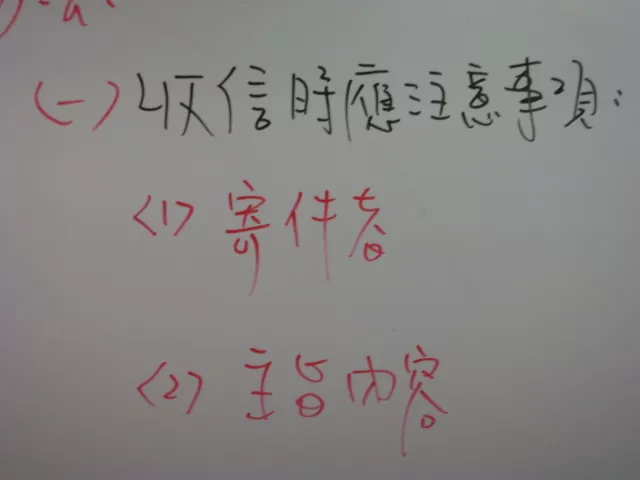 (一)收信时應注意事項:
<1>寄件者
<2>主旨内容